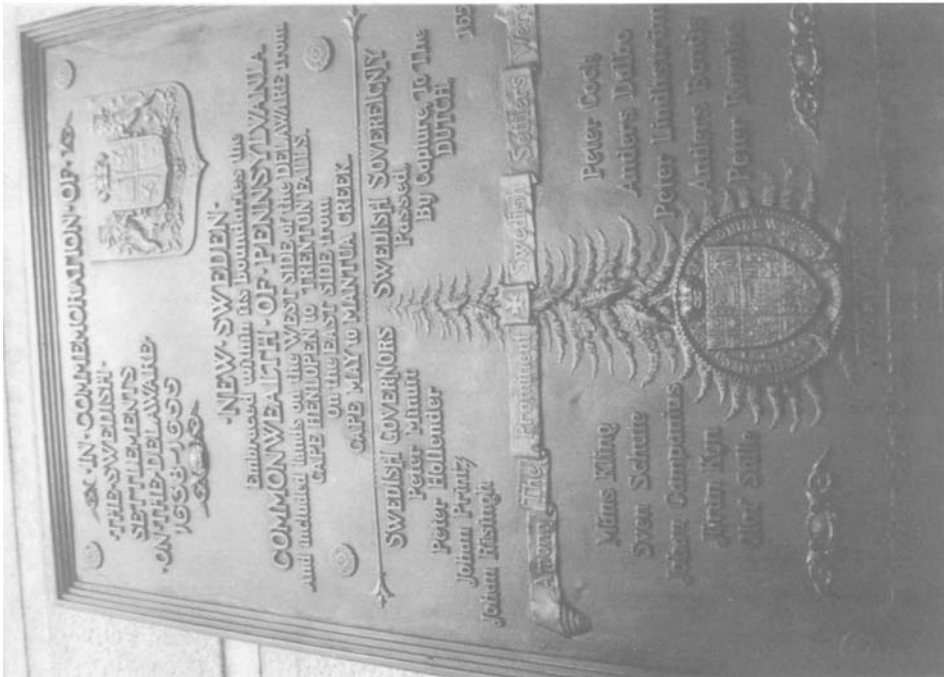 ·IN·COMMEMORATION·OF·
·THE·SWEDISH·
SETTLEMENTS
·ON·THE·DELAWARE·
1638-1655
·NEW·SWEDEN·
Embraced within its boundaries the
COMMONWEALTH·OF·PENNSYLVANIA
And included lands on the WEST SIDE of the DELAWARE from
CAPE HENLOPEN to TRENTON FALLS.
On the EAST SIDE from
CAPE MAY to MANTUA CREEK.
SWEDISH GOVERNORS
Peter Minuit
Peter Hollender
Johan Printz
Johan Risingh
SWEDISH SOVEREIGNY
Passed
By Capture, To The
DUTCH 165
Among The Prominent Swedish Settlers Were
Måns Kling
Sven Schute
Johan Campanius
Jöran Kyn
Olof Stille
Peter Cock
Anders Dalbo
Peter Lindheström
Anders Bonde
Peter Rambo